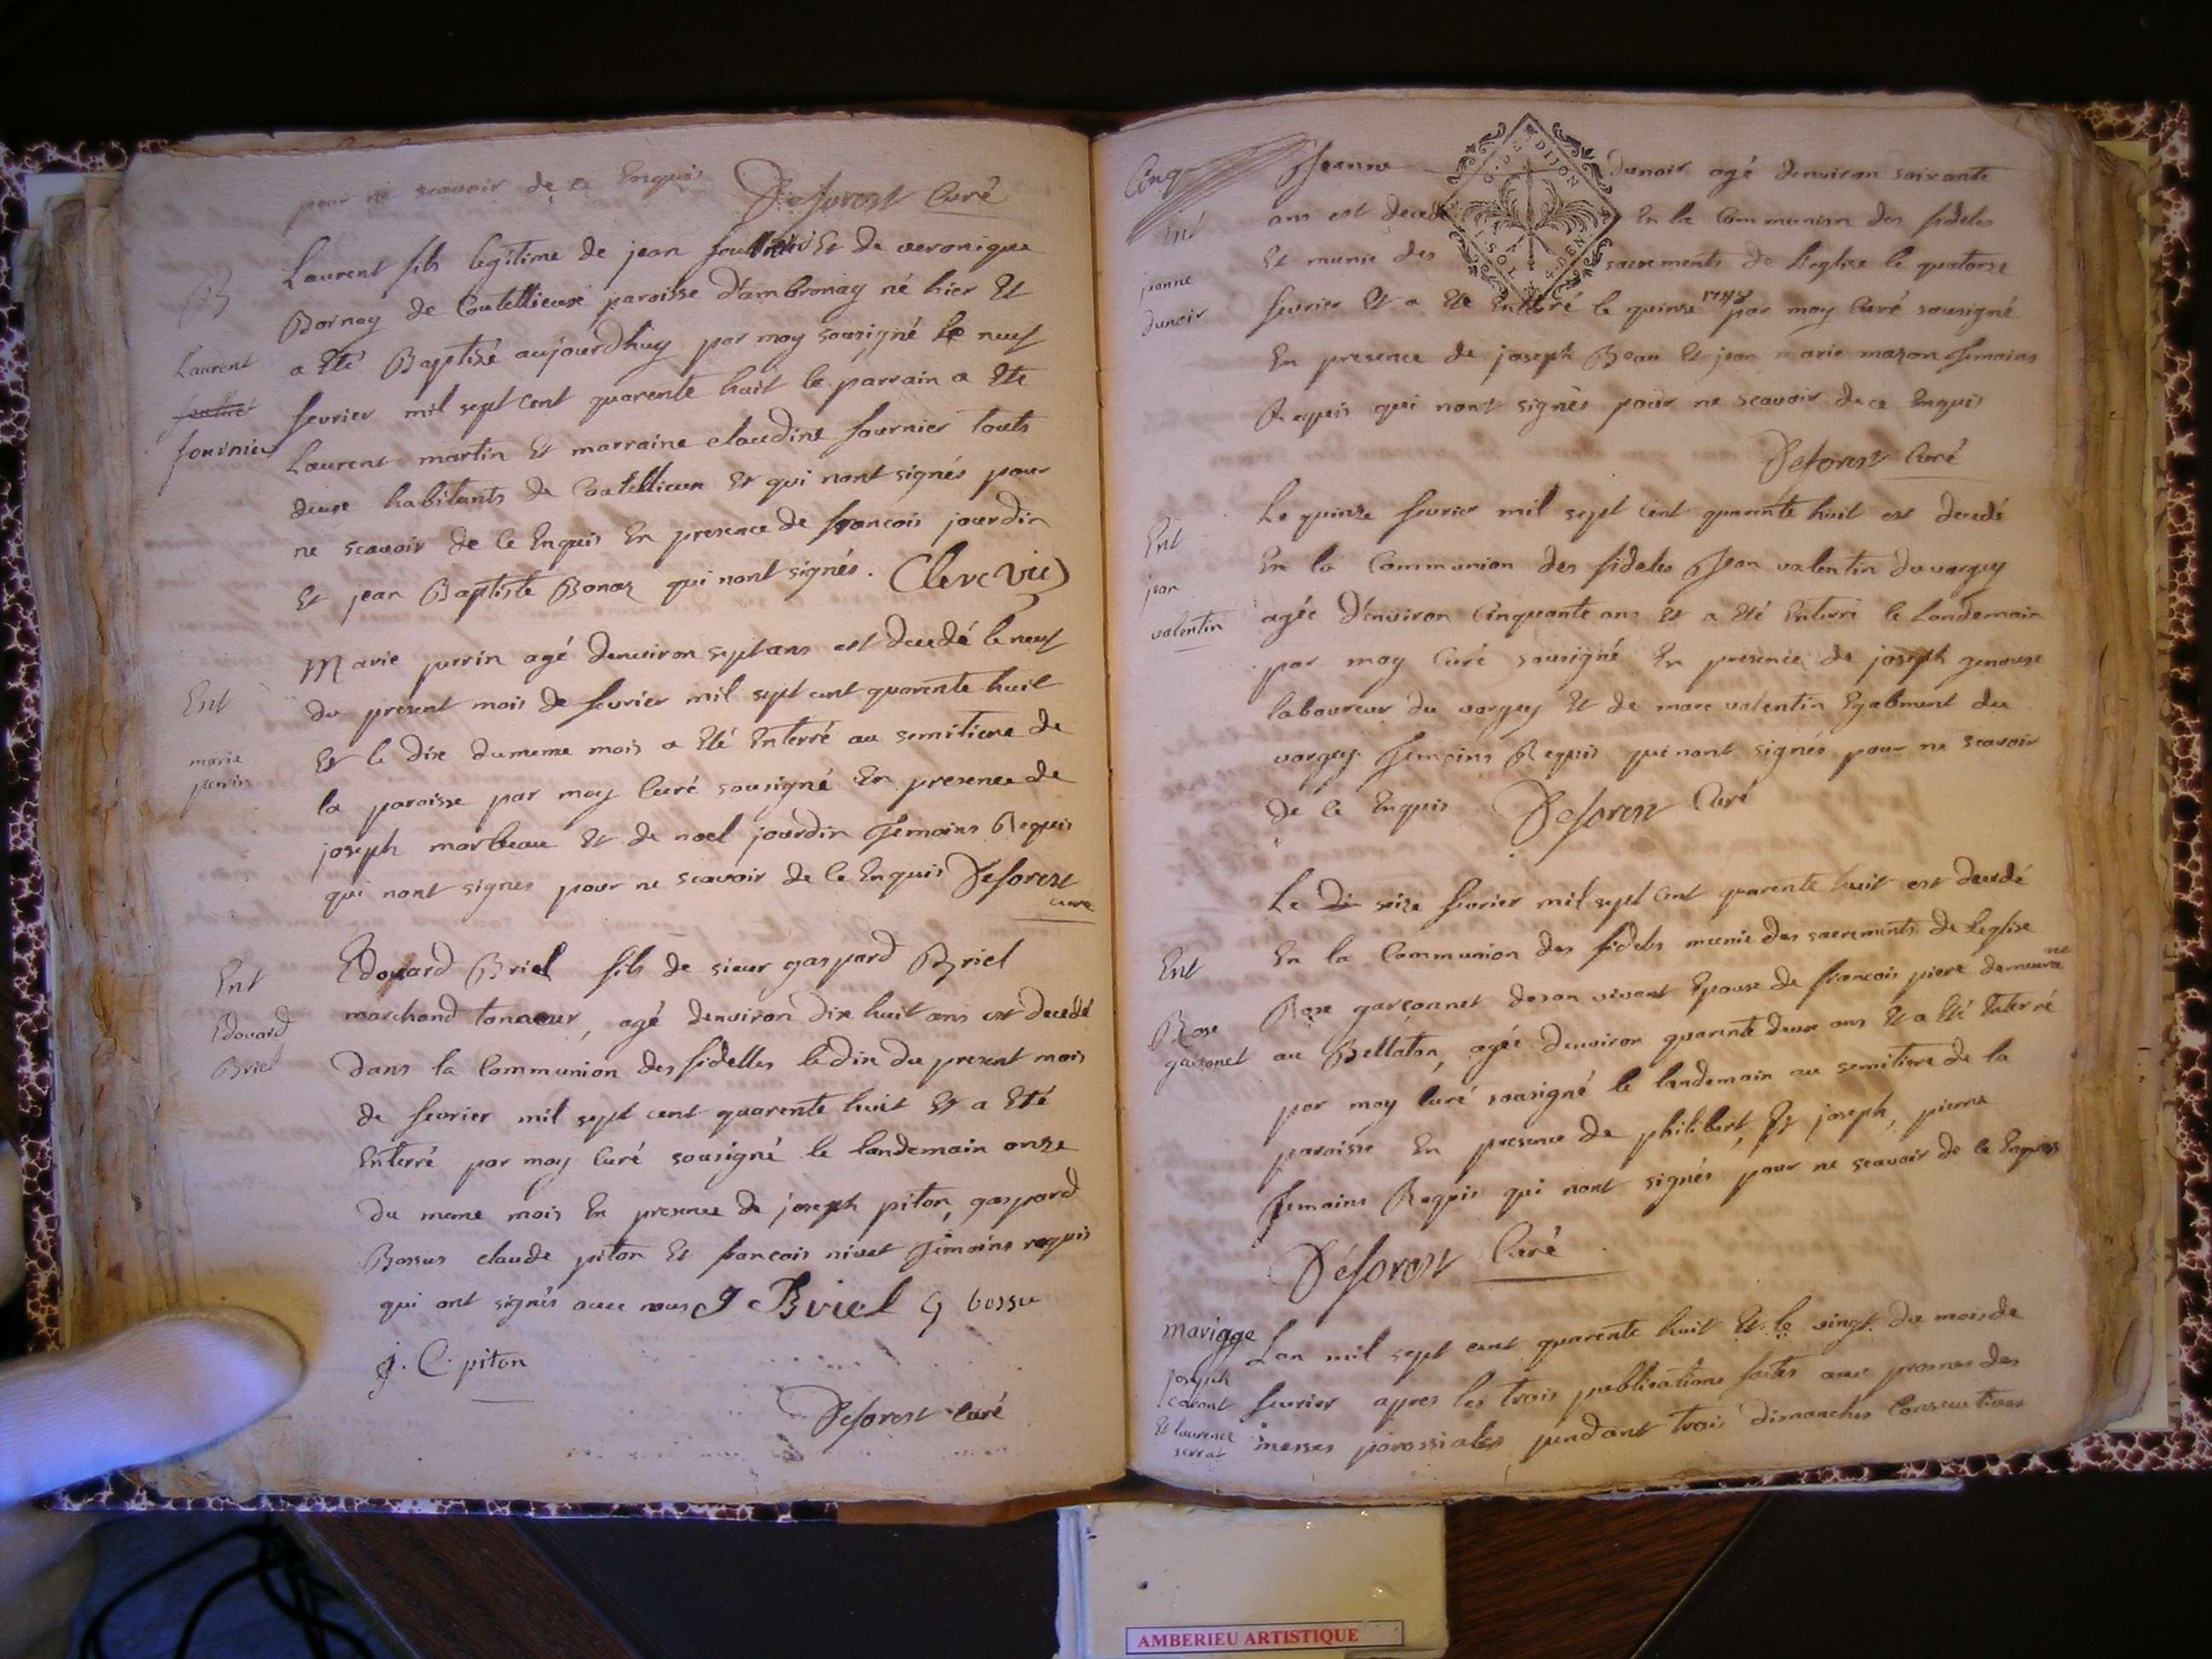 pour ne scavoir de ce Enquis Deforest Curé
B
Laurent fils legitime de jean Et de veronique
Bornay de Coutellieux paroisse d'ambronay né hier Et
a Eté Baptisé aujourdhuy par moy sousigné le neuf
fevrier mil sept cent quarente huit le parrain a Ete
Laurent martin Et marraine claudine fournier touts
deux habitants de Coutellieux Et qui nont signés pour
ne scavoir de ce Enquis En presence de francois jourdin
Et jean Baptiste Bonaz qui nont signés. Clerc vic
Laurent
fournier
Ent
marie
perrin
Marie perrin agé denviron sept ans est decedé le neuf
du present mois de fevrier mil sept cent quarente huit
Et le dix du meme mois a Eté Enterré au semitiere de
la paroisse par moy Curé sousigné En presence de
joseph marbeau Et de noel jourdin Temoins Requis
qui nont signes pour ne scavoir de ce Enquis Deforest
curé
Ent
Edouard
Briel
Edouard Briel fils de sieur gaspard Briel
marchand taneur, agé denviron dix huit ans est decedé
Dans la Communion des fidelles le dix du present mois
de fevrier mil sept cent quarente huit Et a Eté
Enterré par moy Curé sousigné le landemain onze
du meme mois En presence de joseph piton, gaspard
Bossus claude piton Et francois nivet Temoins requis
qui ont signés avec nous J Briel G bossu
j. C. piton
Deforest Curé
Cinq
Ent
jeanne
dunoir
Jeanne dunoir agé denviron soixante
ans est decedé En la Communion des fideles
Et munie des sacrements de l'eglise le quatorze
fevrier Et a Ete Enterré le quinze 1748 par moy Curé sousigné
En presence de joseph Beau Et jean marie mazon Temoins
Requis qui nont signés pour ne scavoir de ce Enquis
Deforest Curé
G. DE DIJON
Ent
jean
valentin
Le quinze fevrier mil sept cent quarente huit est decedé
En la Communion des fideles Jean valentin du vorgey
agée d'environ Cinquante ans Et a Eté Enterré le Landemain
par moy Curé sousigné En presence de joseph genoux
laboureur du vorgey Et de marc valentin Egalement du
vorgey Temoins Requis qui nont signés pour ne scavoir
de ce Enquis Deforest Curé
Ent
Rose
garsonet
Le di seize fevrier mil sept cent quarente huit est decedé
En la Communion des fideles munie des sacrements de Leglise
Rose garçonnet de son vivant Epouse de francois piere
au Bellaton, agée denviron quarente deux ans Et a Eté Enterré
par moy Curé sousigné le landemain au semitiere de la
paroisse En presence de philibert, Et joseph, pierre
Temoins Requis qui nont signés pour ne scavoir de ce Enquis
Deforest Curé
mariage
joseph
Et laurence
serrat
Lan mil sept cent quarente huit Et le vingt du mois de
fevrier apres les trois publications faites aux prosnes des
messes paroissiales pendant trois dimanches Consecutives
AMBERIEU ARTISTIQUE